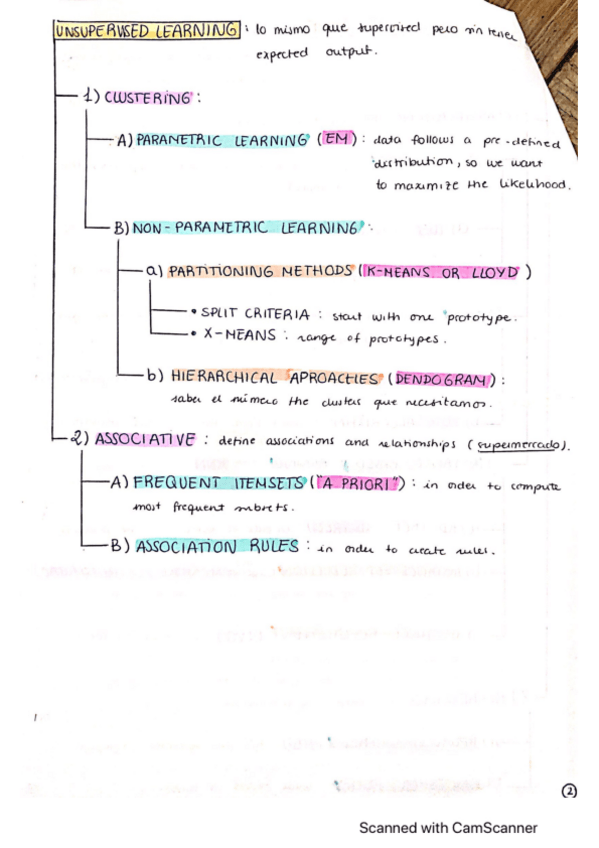 UNSUPERVISED LEARNING : lo mismo que supervised pero sin tener
expected output.
1) CLUSTERING :
A) PARAMETRIC LEARNING (EM) : data follows a pre-defined
distribution, so we want
to maximize the likelihood.
B) NON-PARAMETRIC LEARNING :
a) PARTITIONING METHODS (K-MEANS OR LLOYD)
• SPLIT CRITERIA : start with one prototype.
• X-MEANS : range of prototypes.
b) HIERARCHICAL APROACHES (DENDOGRAM) :
saber el número the clusters que necesitamos.
2) ASSOCIATIVE : define associations and relationships (supermercado).
A) FREQUENT ITEMSETS ("A PRIORI") : in order to compute
most frequent subsets.
B) ASSOCIATION RULES : in order to create rules.
(2)
Scanned with CamScanner